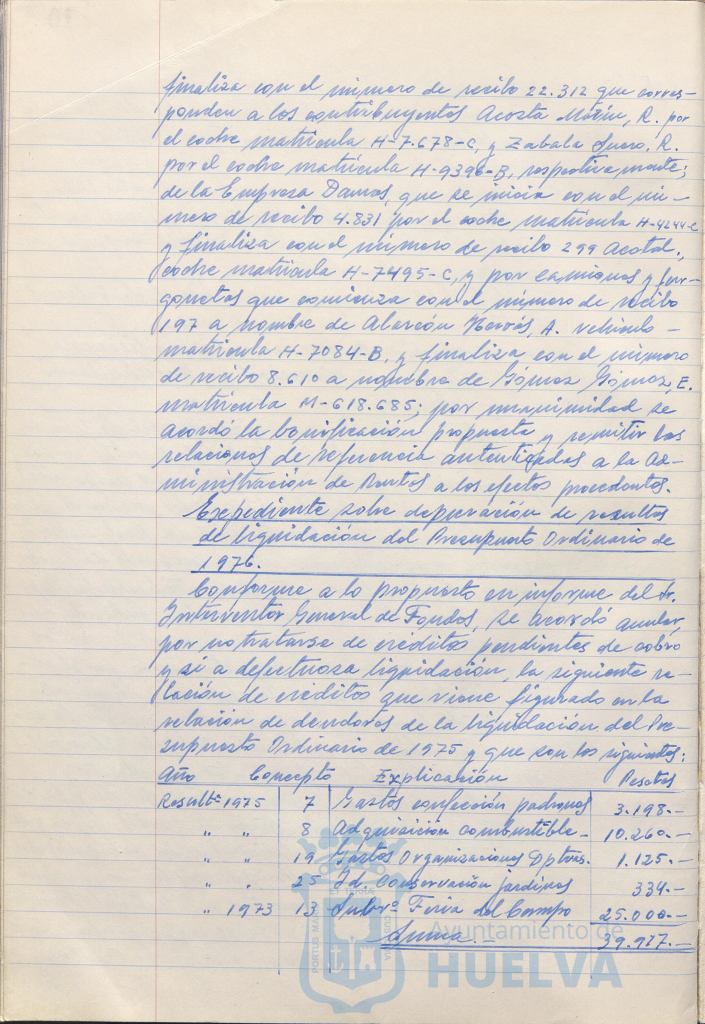 finaliza con el número de recibo 22.312 que corres-
ponden a los contribuyentes Acosta Marín, R. por
el coche matrícula H-7.678-C, y Zabala Suero, R.
por el coche matrícula H-9396-B, respectivamente;
de la Empresa Damas, que se inicia con el nú-
mero de recibo 4.831 por el coche matrícula H-4244-C
y finaliza con el número de recibo 299 Acotal.,
coche matrícula H-7495-C, y por camiones y fur-
gonetas que comienza con el número de recibo
197 a nombre de Alarcón A. vehículo -
matrícula H-7084-B, y finaliza con el número
de recibo 8.610 a nombre de Gómez Gómez, E.
matrícula M-618.685; por unanimidad se
acordó la bonificación propuesta y remitir las
relaciones de referencia autenticadas a la Ad-
ministración de Rentas a los efectos procedentes.
Expediente sobre depuración de resultas
de liquidación del Presupuesto Ordinario de
1976.
Conforme a lo propuesto en informe del Sr.
Interventor General de Fondos, se acordó anular,
por no tratarse de créditos pendientes de cobro
y sí a defectuosa liquidación, la siguiente re-
lación de créditos que viene figurado en la
relación de deudores de la liquidación del Pre-
supuesto Ordinario de 1975 y que son los siguientes:
Año Concepto Explicación Pesetas
Resultª 1975 7 Gastos confección padrones 3.198.-
" " 8 Adquisición combustible.- 10.260.-
" " 19 Gastos Organizaciones Dptvas. 1.125.-
" " 25 Id. conservación jardines 334.-
" 1973 13 Subvª Feria del Campo 25.000.-
Suma.- 39.917.-
Ayuntamiento de
HUELVA